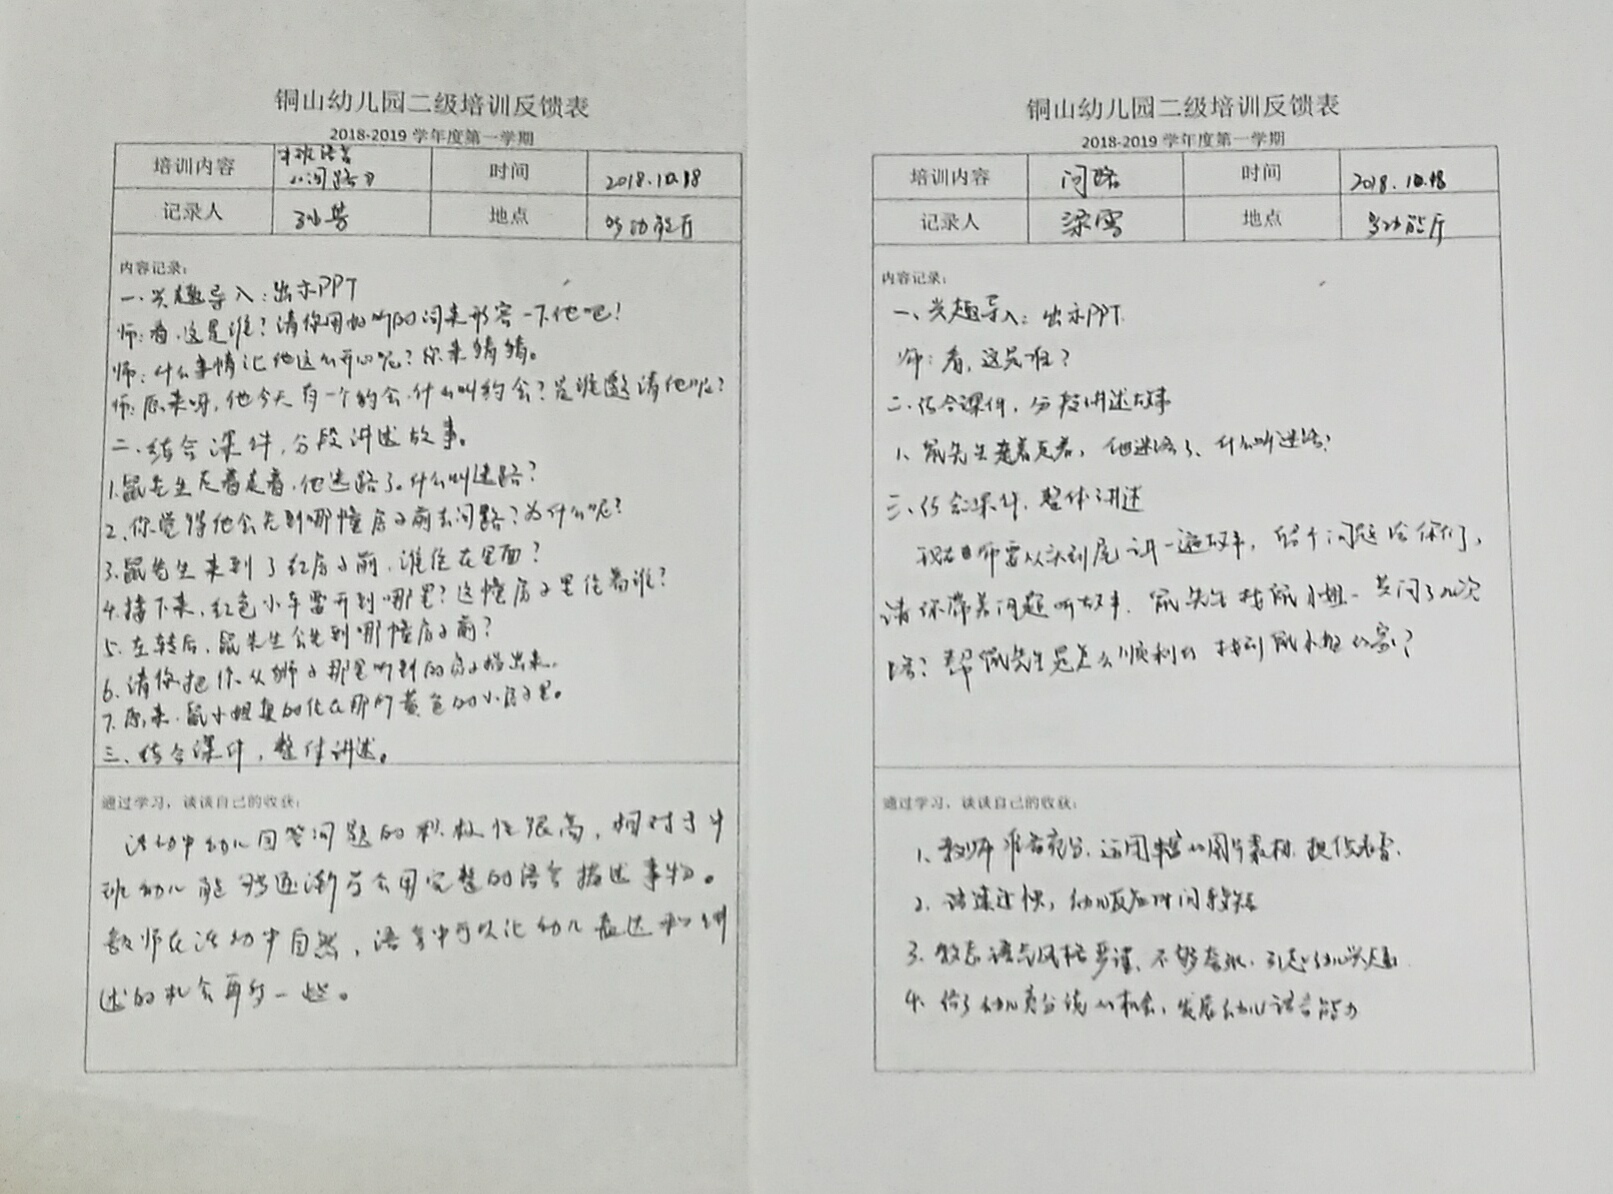 铜山幼儿园二级培训反馈表
2018-2019 学年度第一学期
培训内容
中班语言
《问路》
时间
2018.10.18
记录人
孙芳
地点
多功能厅
内容记录：
一、兴趣导入：出示PPT
师：看，这是谁？请你用好听的词来形容一下他吧！
师：什么事情让他这么开心呢？你来猜猜。
师：原来呀，他今天有一个约会，什么叫约会？是谁邀请他呢？
二、结合课件，分段讲述故事。
1.鼠先生走着走着，他迷路了。什么叫迷路？
2、你觉得他会先到哪幢房子前去问路？为什么呢？
3.鼠先生来到了红房子前，谁住在里面？
4.接下来，红色小车要开到哪里？这幢房子里住着谁？
5.左转后，鼠先生会先到哪幢房子前？
6.请你把你从狮子那里听到的房子指出来。
7.原来，鼠小姐真的住在那所黄色的小房子里。
三、结合课件，整体讲述。
通过学习，谈谈自己的收获：
活动中幼儿回答问题的积极性很高，相对于中
班幼儿能够逐渐学会用完整的语言描述事物。
教师在活动中自然，语言中可以让幼儿表达和讲
述的机会再多一些。
铜山幼儿园二级培训反馈表
2018-2019 学年度第一学期
培训内容
问路
时间
2018.10.18
记录人
梁雪
地点
多功能厅
内容记录：
一、兴趣导入：出示PPT.
师：看，这是谁？
二、结合课件，分段讲述故事
1、鼠先生走着走着，他迷路了、什么叫迷路？
三、结合课件，整体讲述
现在老师要从头到尾讲一遍故事，留个问题给你们，
请你带着问题听故事，鼠先生找鼠小姐一共问了几次
路？鼠先生是怎么顺利的找到鼠小姐的家？
通过学习，谈谈自己的收获：
1、教师准备充分，运用丰富的图片素材，
2、语速过快，幼儿反应时间较短
3、教态语言风格严谨、不够, 引起幼儿兴趣
4、给了幼儿充分说的机会，发展幼儿语言能力